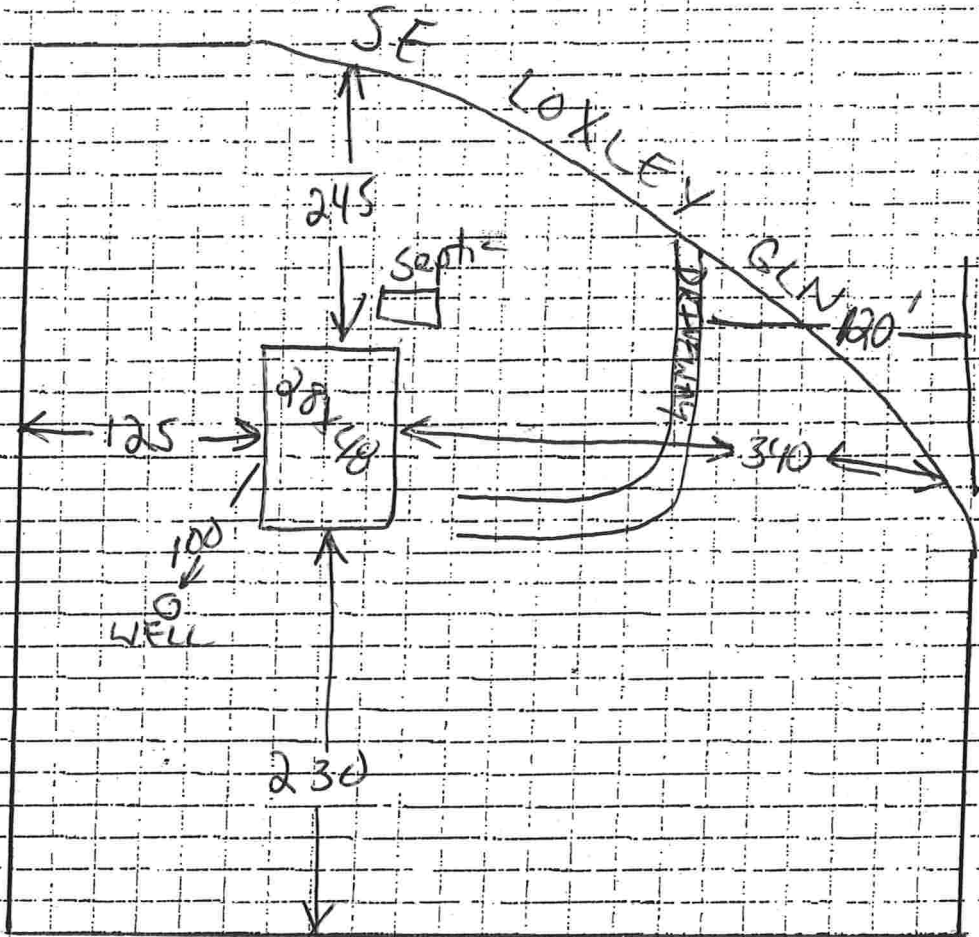 SE LOXLEY GLN
245
Septic
DRIVEWAY
120'
28 x 48
125
340
100
WELL
230